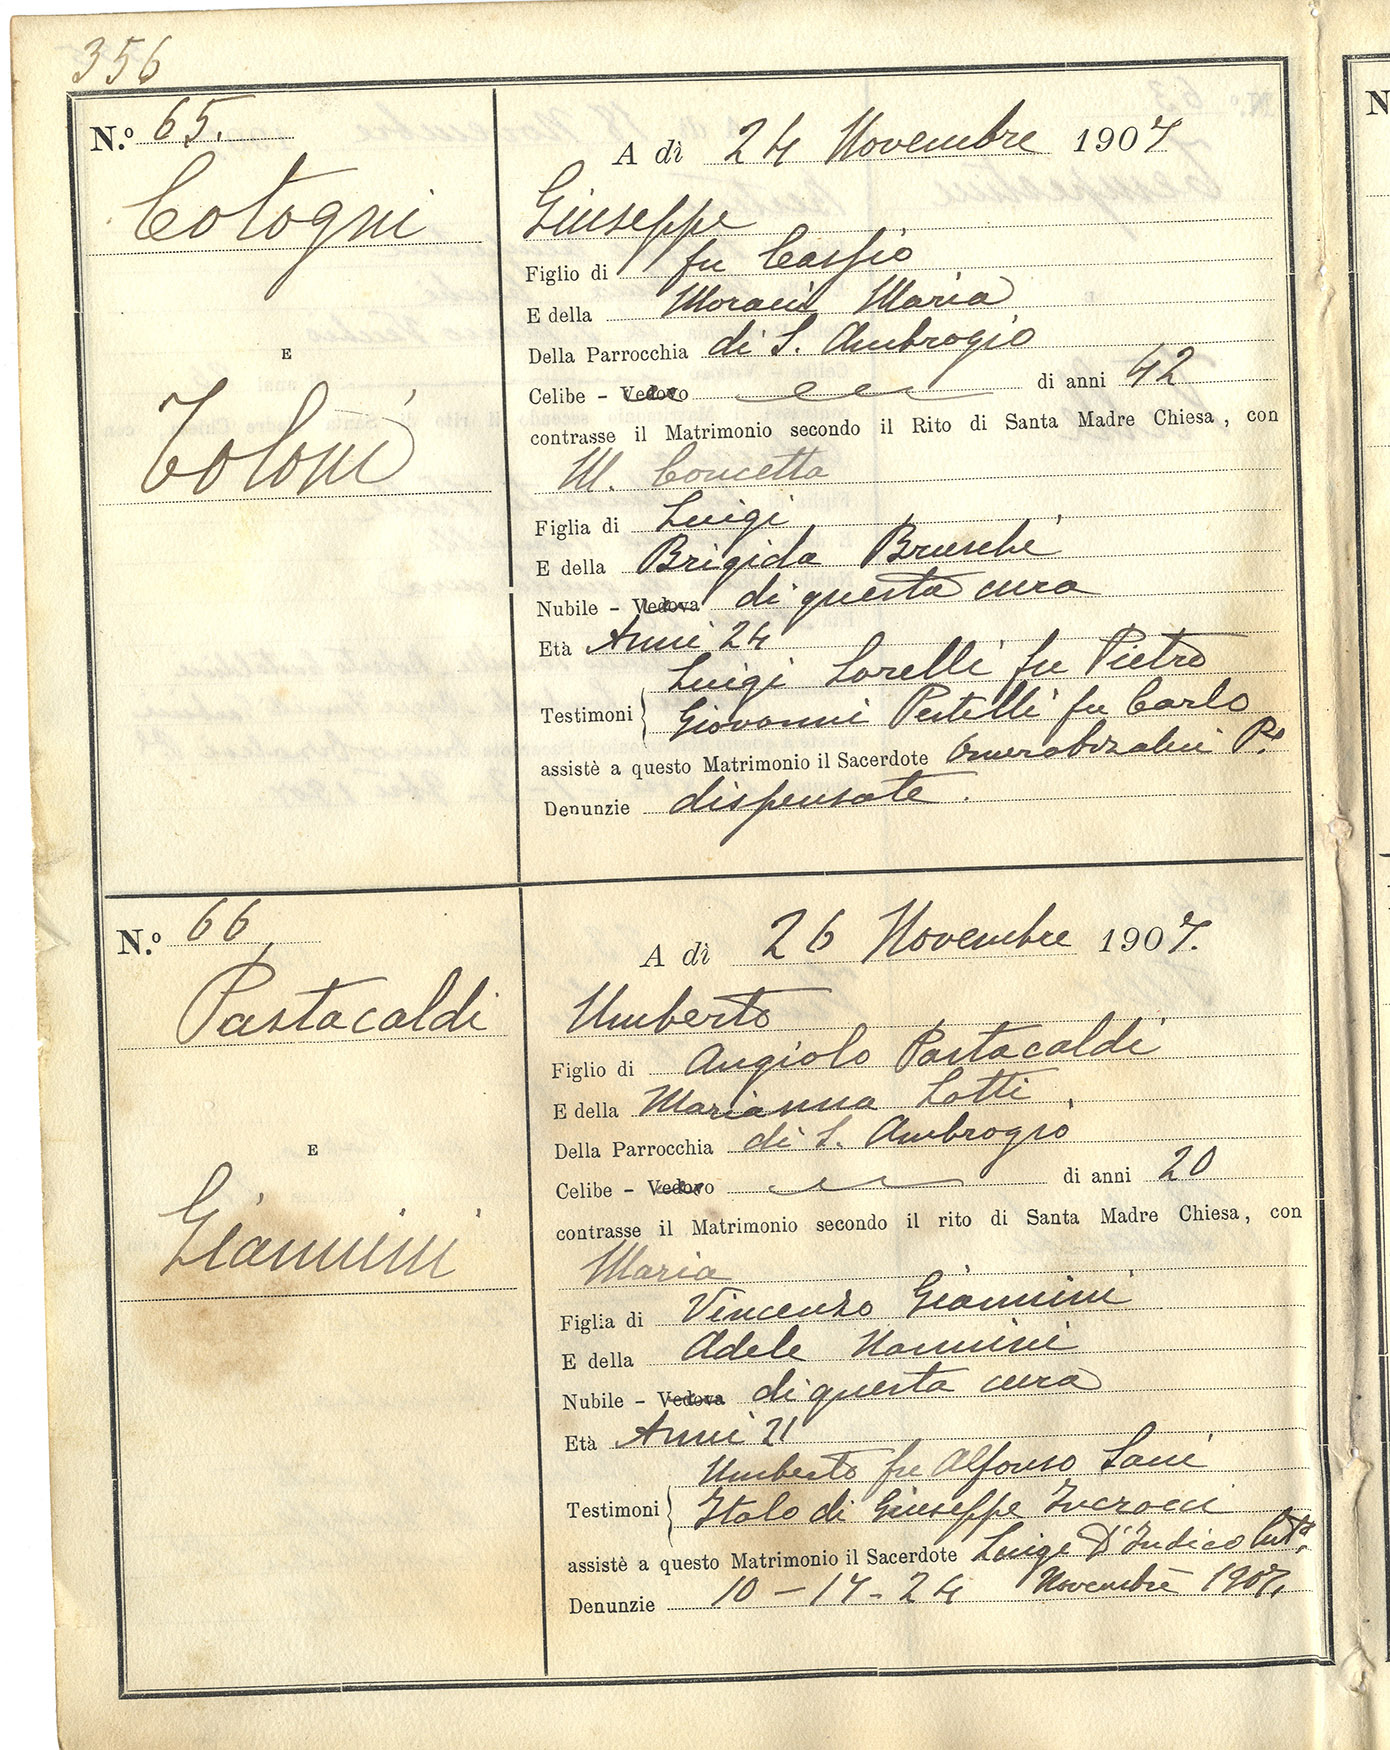 356
N.º 65.
Cotogni
E
Toloni
A dì 24 Novembre 1907
Giuseppe
Figlio di fu Cassio
E della Maria
Della Parrocchia di S. Ambrogio
Celibe - Vedovo di anni 42
contrasse il Matrimonio secondo il Rito di Santa Madre Chiesa, con
M. Concetta
Figlia di Luigi
E della Brigida Bruschi
Nubile - Vedova di questa cura
Età Anni 24
Luigi Lorelli fu Pietro
Testimoni Giovanni Pestelli fu Carlo
assistè a questo Matrimonio il Sacerdote
Denunzie dispensate.
N.º 66
Pastacaldi
E
Giannini
A dì 26 Novembre 1907.
Umberto
Figlio di Angiolo Pastacaldi
E della Marianna Lotti
Della Parrocchia di S. Ambrogio
Celibe - Vedovo di anni 20
contrasse il Matrimonio secondo il rito di Santa Madre Chiesa, con
Maria
Figlia di Vincenzo Giannini
E della Adele Nannini
Nubile - Vedova di questa cura
Età Anni 21
Umberto fu Alfonso Lani
Testimoni Italo di Giuseppe Incrocci
assistè a questo Matrimonio il Sacerdote Luigi D'Indico
Denunzie 10 - 17 - 24 Novembre 1907.
N